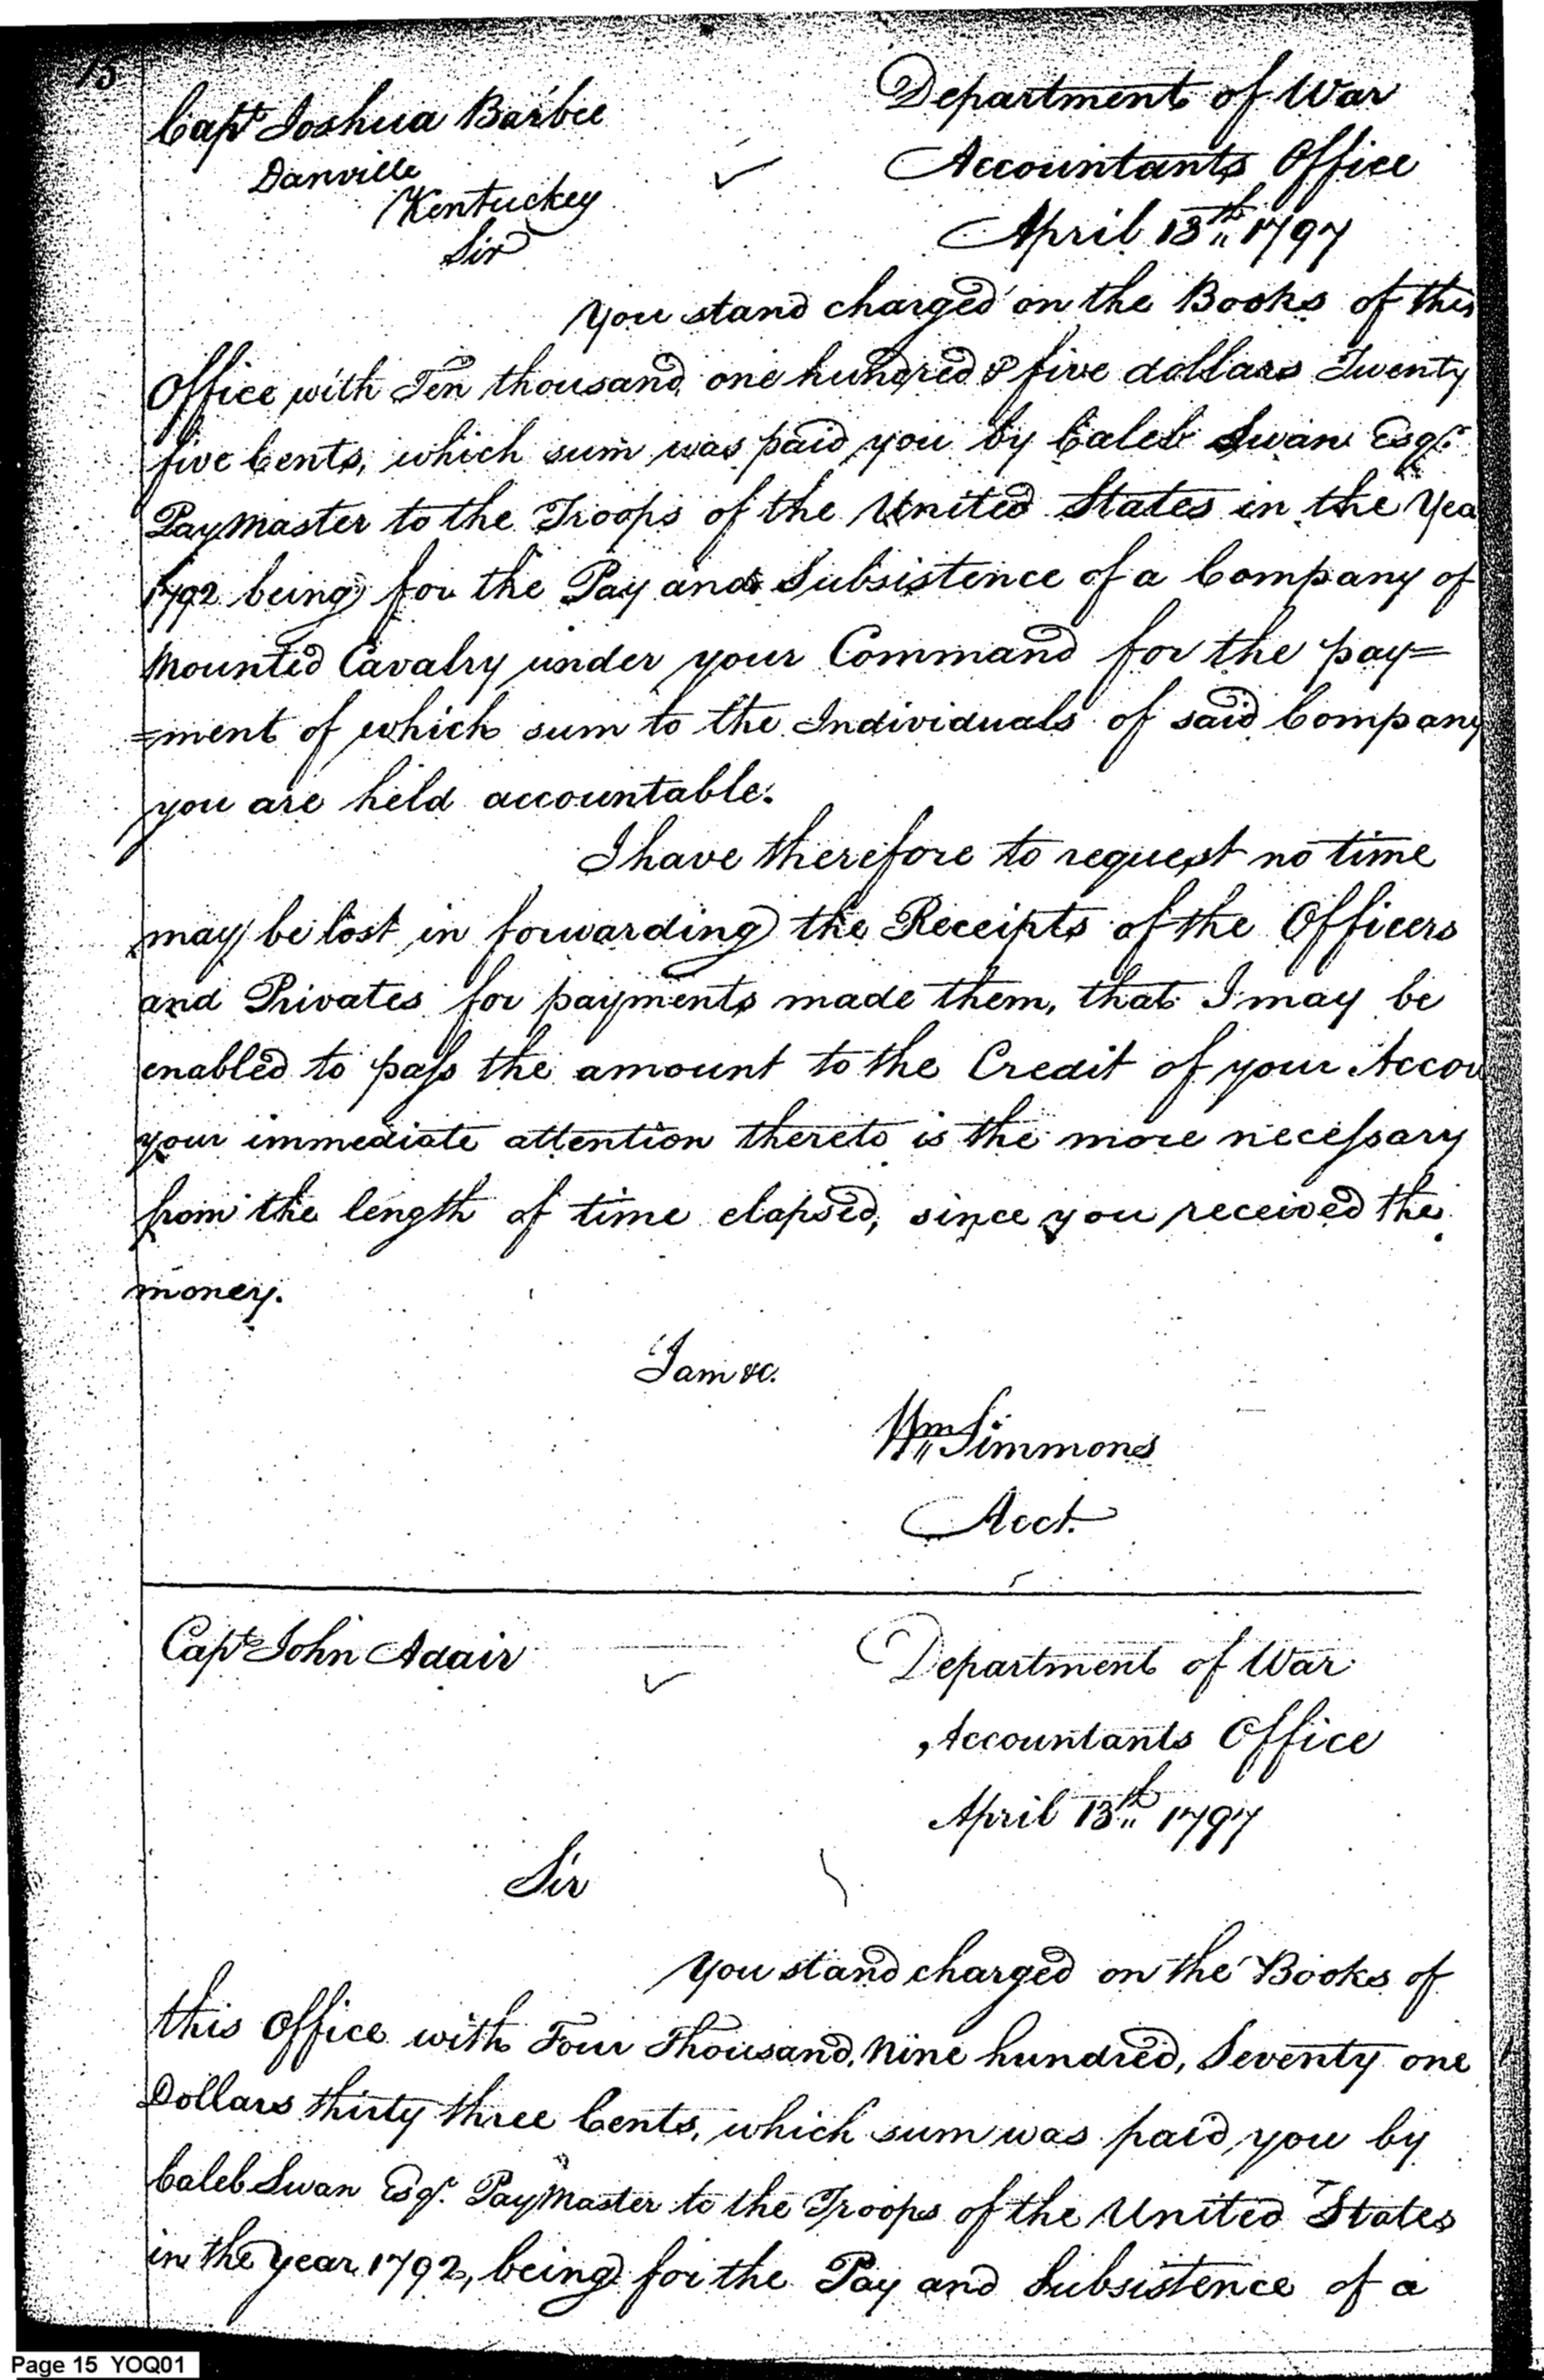 15
Capt Joshua Barbee
Danville
Kentuckey
Sir
Department of War
Accountants Office
April 13th 1797
You stand charged on the Books of this
Office with Ten thousand one hundred & five dollars Twenty
five Cents, which sum was paid you by Caleb Swan Esqr.
PayMaster to the Troops of the United States in the Yea
1792 being for the Pay and Subsistence of a Company of
Mounted Cavalry under your Command for the pay=
=ment of which sum to the Individuals of said Company
you are held accountable.
I have therefore to request no time
may be lost in forwarding the Receipts of the Officers
and Privates for payments made them, that I may be
enabled to pass the amount to the Credit of your Accou
your immediate attention thereto is the more necessary
from the length of time elapsed, since you received the
money.
I am &c.
Wm Simmons
Acct.
Capt John Adair
Department of War
Accountants Office
April 13th 1797
Sir
You stand charged on the Books of
this Office with Four Thousand, Nine hundred, Seventy one
Dollars thirty three Cents, which sum was paid you by
Caleb Swan Esqr. PayMaster to the Troops of the United States
in the year 1792, being for the Pay and Subsistence of a
Page 15 YOQ01